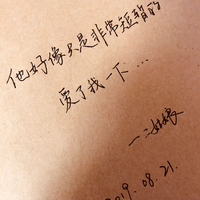 他好像只是非常短暂的
爱了我一下...
一三姑娘
2019.08.21.